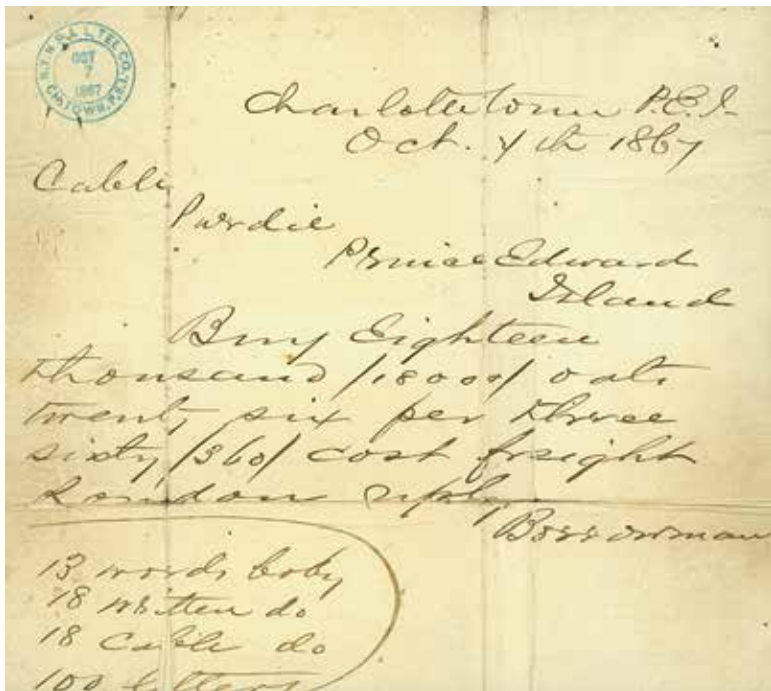 N.Y.N.F.& L. TEL. CO.
OCT
7
1867
CH.TOWN, P.E.I.
Charlottetown P.E.I.
Oct. 7th 1867
Cable
Purdie
Prince Edward
Island
Buy Eighteen
thousand /18000/ oats
twenty six per three
sixty /360/ cost freight
London reply
Borrowman
13 words body
18 written do
18 Cable do
100 letters